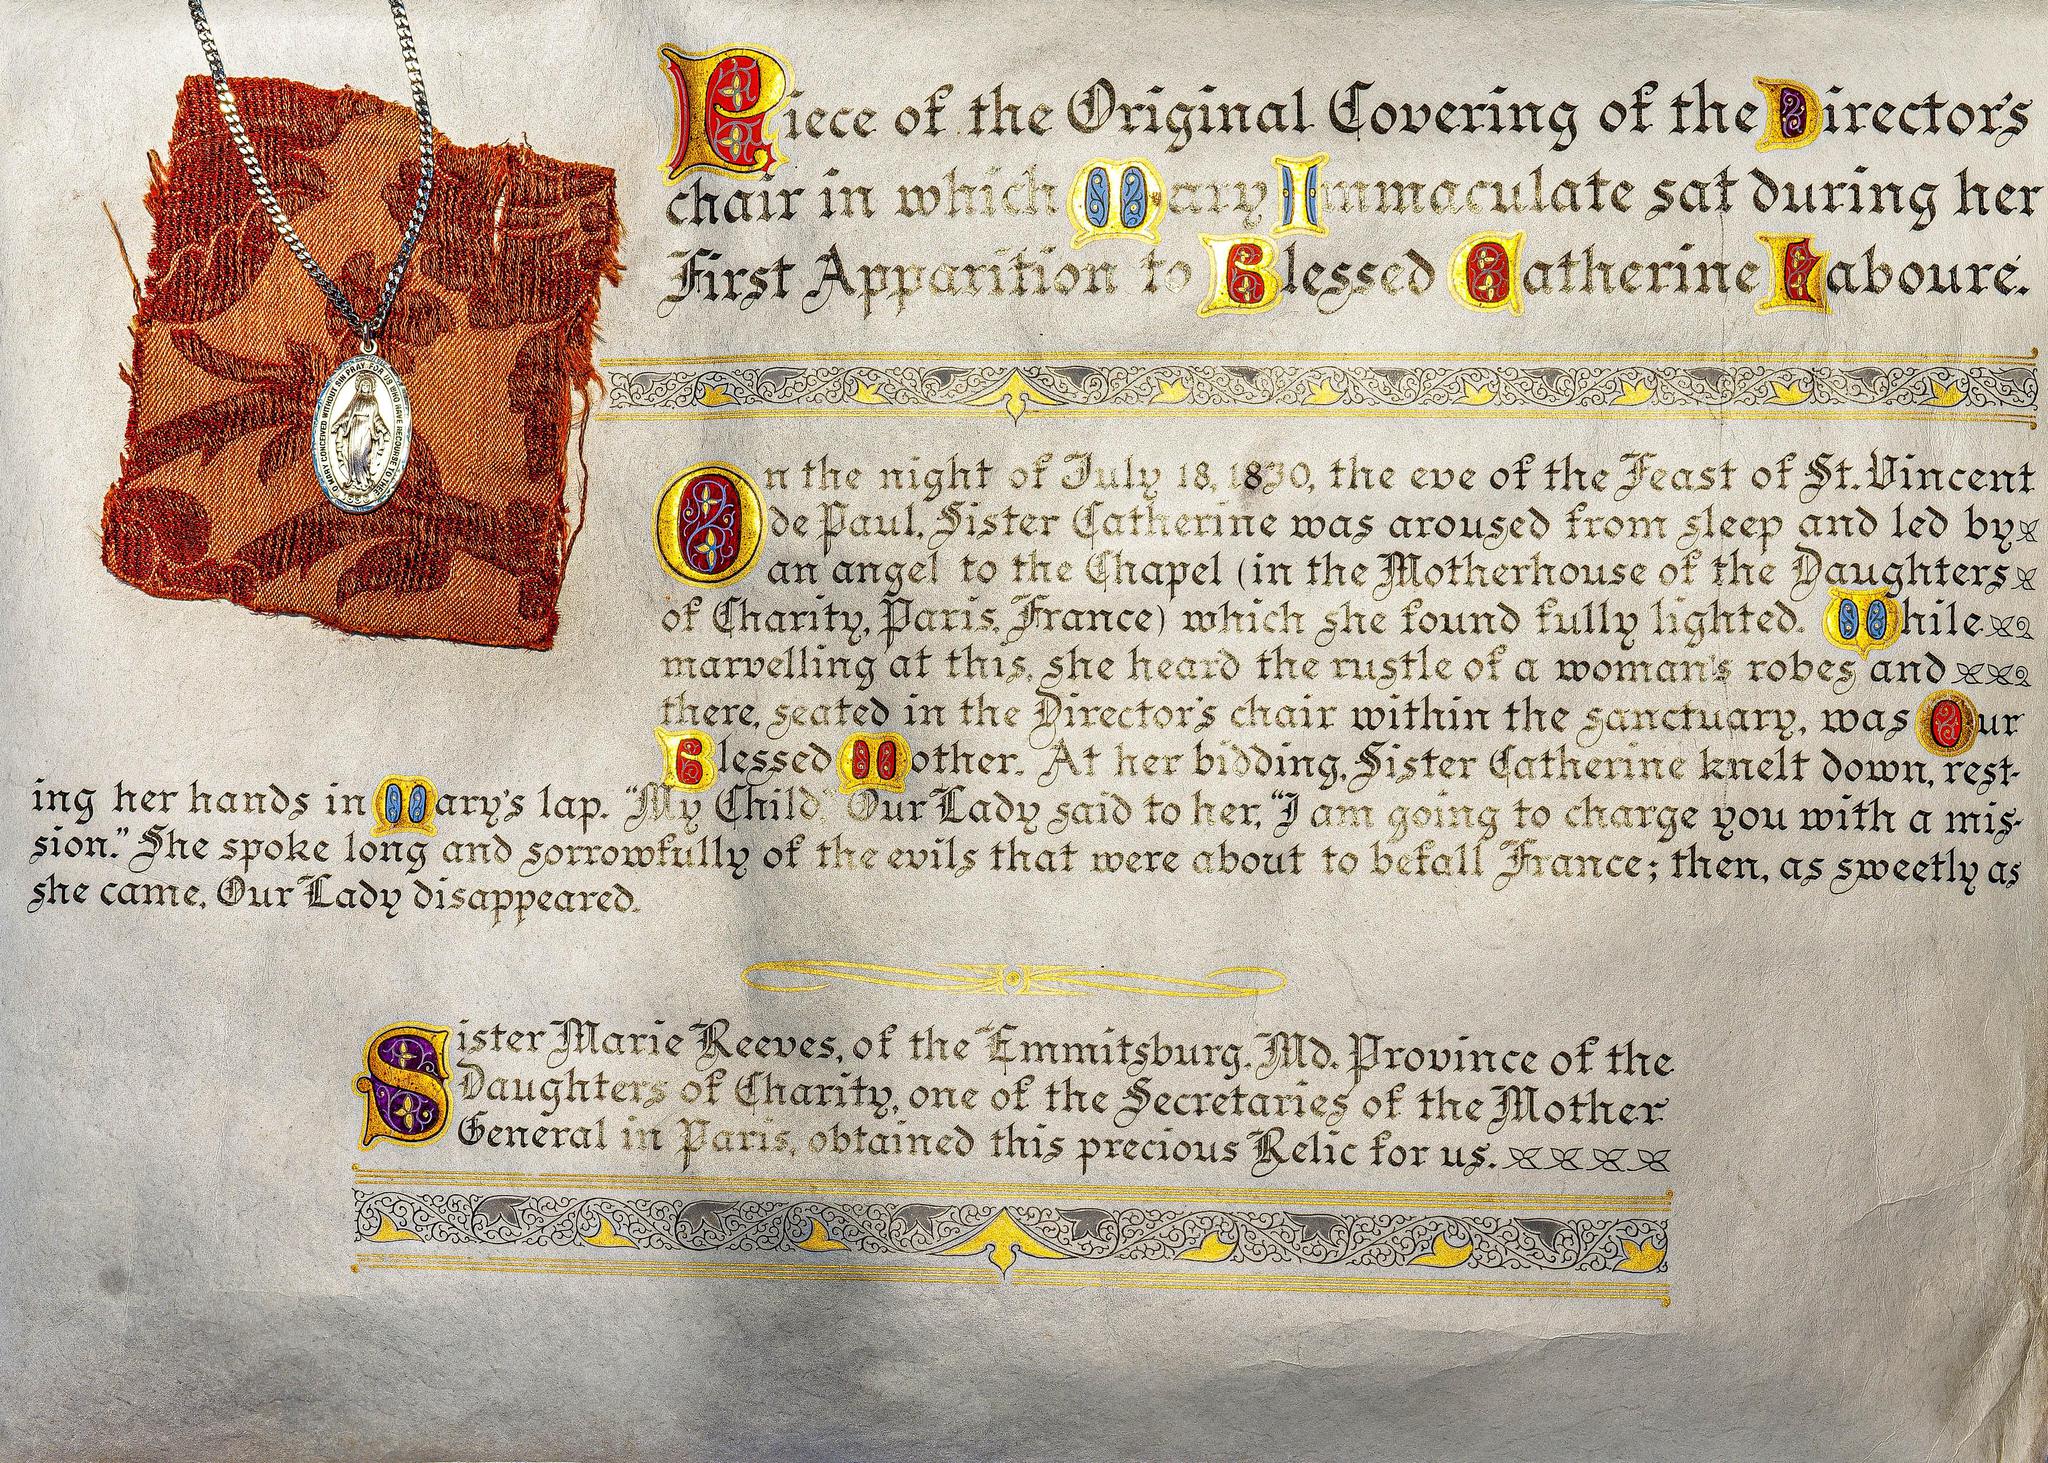 Piece of the Original Covering of the Director's
chair in which Mary Immaculate sat during her
First Apparition to Blessed Catherine Labouré.
O MARY CONCEIVED WITHOUT SIN PRAY FOR US WHO HAVE RECOURSE TO THEE
1830
On the night of July 18, 1830, the eve of the Feast of St. Vincent
de Paul, Sister Catherine was aroused from sleep and led by
an angel to the Chapel (in the Motherhouse of the Daughters
of Charity, Paris, France) which she found fully lighted. While
marvelling at this, she heard the rustle of a woman's robes and
there, seated in the Director's chair within the sanctuary, was Our
Blessed Mother. At her bidding, Sister Catherine knelt down, rest-
ing her hands in Mary's lap. "My Child," Our Lady said to her, "I am going to charge you with a mis-
sion." She spoke long and sorrowfully of the evils that were about to befall France; then, as sweetly as
she came, Our Lady disappeared.
Sister Marie Reeves, of the Emmitsburg, Md. Province of the
Daughters of Charity, one of the Secretaries of the Mother
General in Paris, obtained this precious Relic for us.